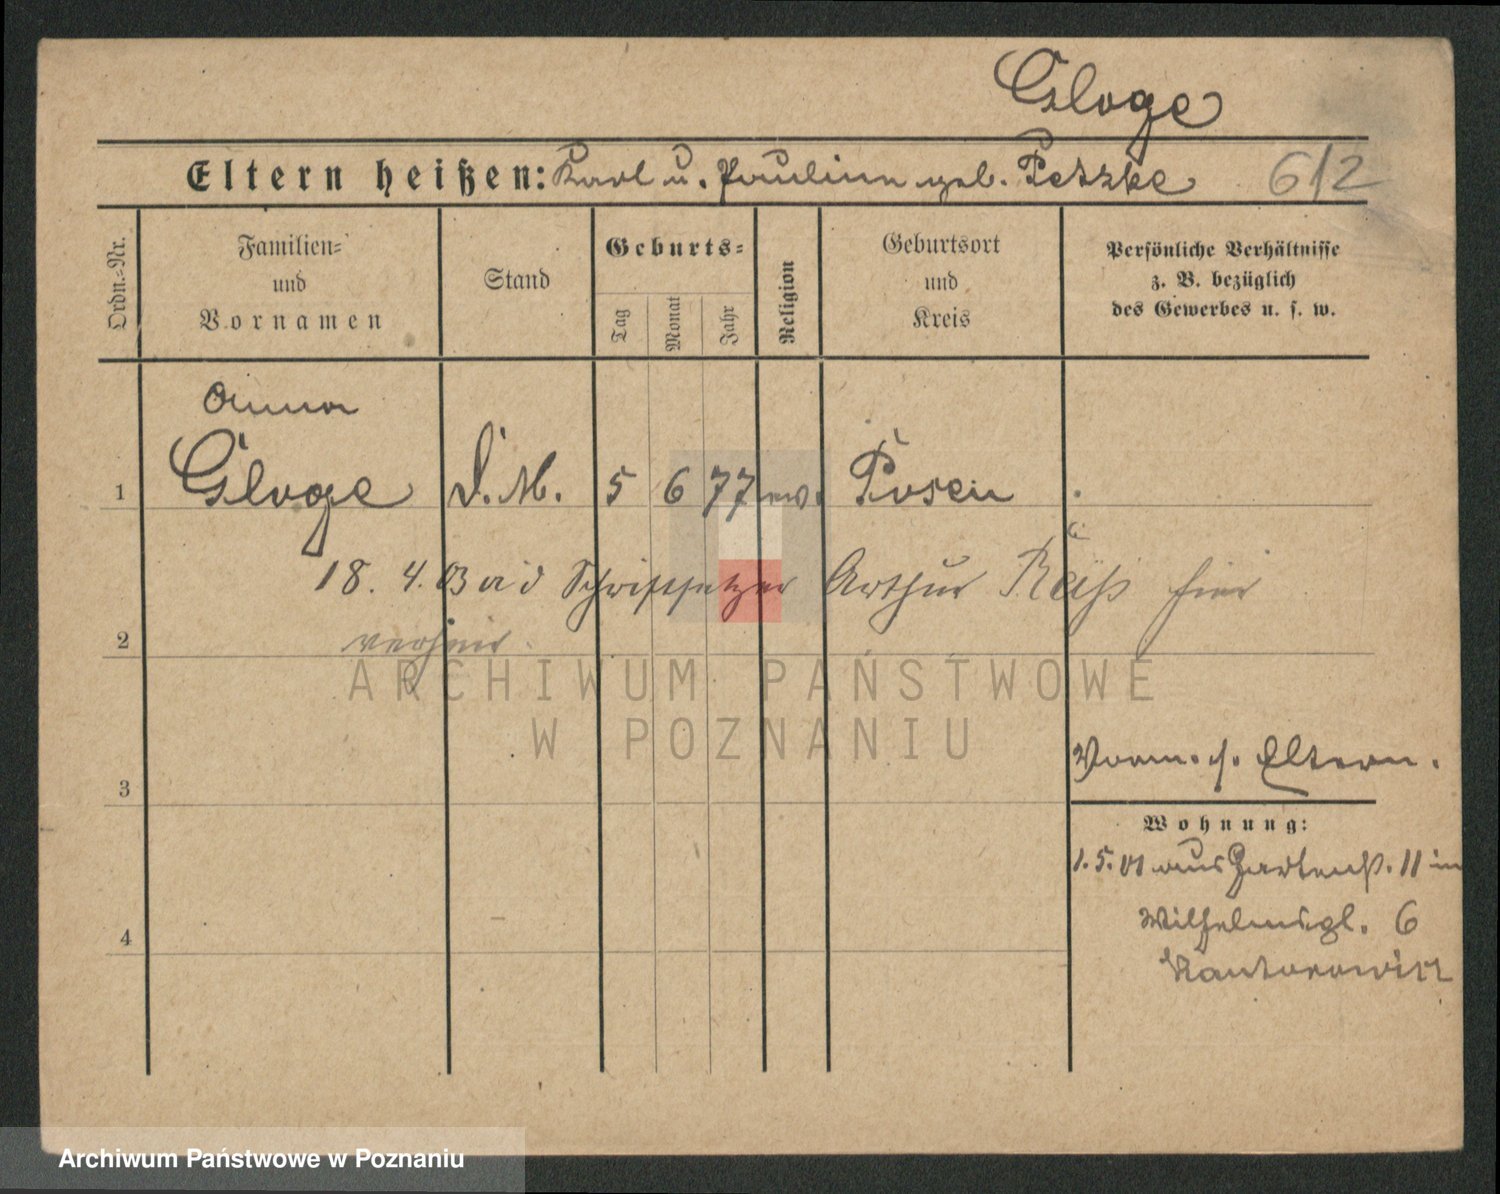 Gloge
Eltern heißen: Karl u. Pauline geb. Petzke 612
Ordn.-Nr.
Familien- und Vornamen
Stand
Geburts-
Tag
Monat
Jahr
Religion
Geburtsort und Kreis
Persönliche Verhältnisse
z. B. bezüglich
des Gewerbes u. s. w.
Anna
1 Gloge D. M. 5 6 77 ev. Posen
18. 4. 03 a d Schriftsetzer Arthur Räß hier
2 verheir.
ARCHIWUM PAŃSTWOWE
W POZNANIU
Vorm. s. Eltern.
3
Wohnung:
1. 5. 01 aus Gartenst. 11 in
Wilhelmspl. 6
4
Kantorowicz
Archiwum Państwowe w Poznaniu